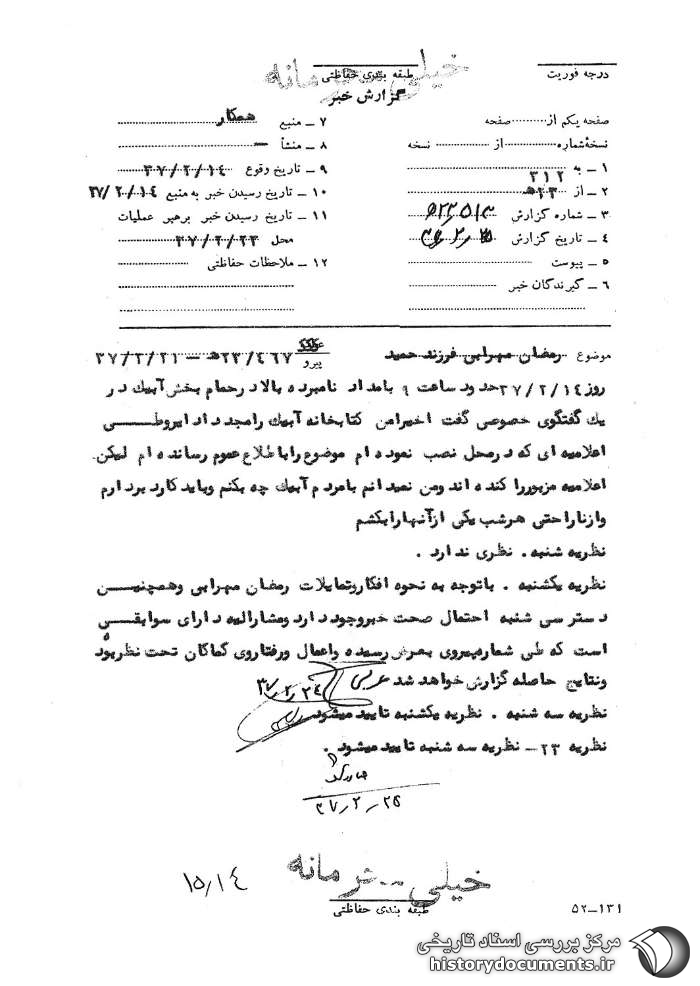 درجه فوریت
خیلی محرمانه
طبقه بندی حفاظتی
گزارش خبر
صفحه یکم از ........ صفحه
نسخهٔ شماره ........ از ........ نسخه
۱ ـ به ۳۱۲
۲ ـ از ۲۳هـ
۳ ـ شماره گزارش
۴ ـ تاریخ گزارش
۵ ـ پیوست
۶ ـ گیرندگان خبر
۷ ـ منبع همکار
۸ ـ منشأ ـ
۹ ـ تاریخ وقوع ۳۷/۲/۱۴
۱۰ ـ تاریخ رسیدن خبر به منبع ۳۷/۲/۱۴
۱۱ ـ تاریخ رسیدن خبر برهبر عملیات
محل ۳۷/۲/۲۳
۱۲ ـ ملاحظات حفاظتی
موضوع رمضان مهرابی فرزند حمید
پیرو ۲۳/٤٦۷هـ ـ ۳۷/۲/۲۱
روز ۳۷/۲/۱٤ حدود ساعت ۹ بامداد نامبرده بالا در حمام بخش آبیك در
یك گفتگوی خصوصی گفت اخیرا من کتابخانه آبیك را مجددا دایر و طی
اعلامیه ای که در محل نصب نموده ام موضوع را باطلاع عموم رسانده ام لیکن
اعلامیه مزبور را کنده اند و من نمیدانم با مردم آبیك چه بکنم و باید کارد بردارم
و از ناراحتی هر شب یکی از آنها را بکشم
نظریه شنبه . نظری ندارد .
نظریه یکشنبه . با توجه به نحوه افکار و تمایلات رمضان مهرابی و همچنین
دسترسی شنبه احتمال صحت خبر وجود دارد و مشارالیه دارای سوابقی
است که طی شماره پیروی بعرض رسیده و اعمال و رفتار وی کماکان تحت نظر بوده
و نتایج حاصله گزارش خواهد شد
۳۷/۲/۲٤
نظریه سه شنبه . نظریه یکشنبه تایید میشود
نظریه ۲۳ ـ نظریه سه شنبه تایید میشود .
۳۷/۲/۲۵
خیلی محرمانه
۱۵/۱٤
طبقه بندی حفاظتی
۵۲ـ۱۳۱
مرکز بررسی اسناد تاریخی
historydocuments.ir